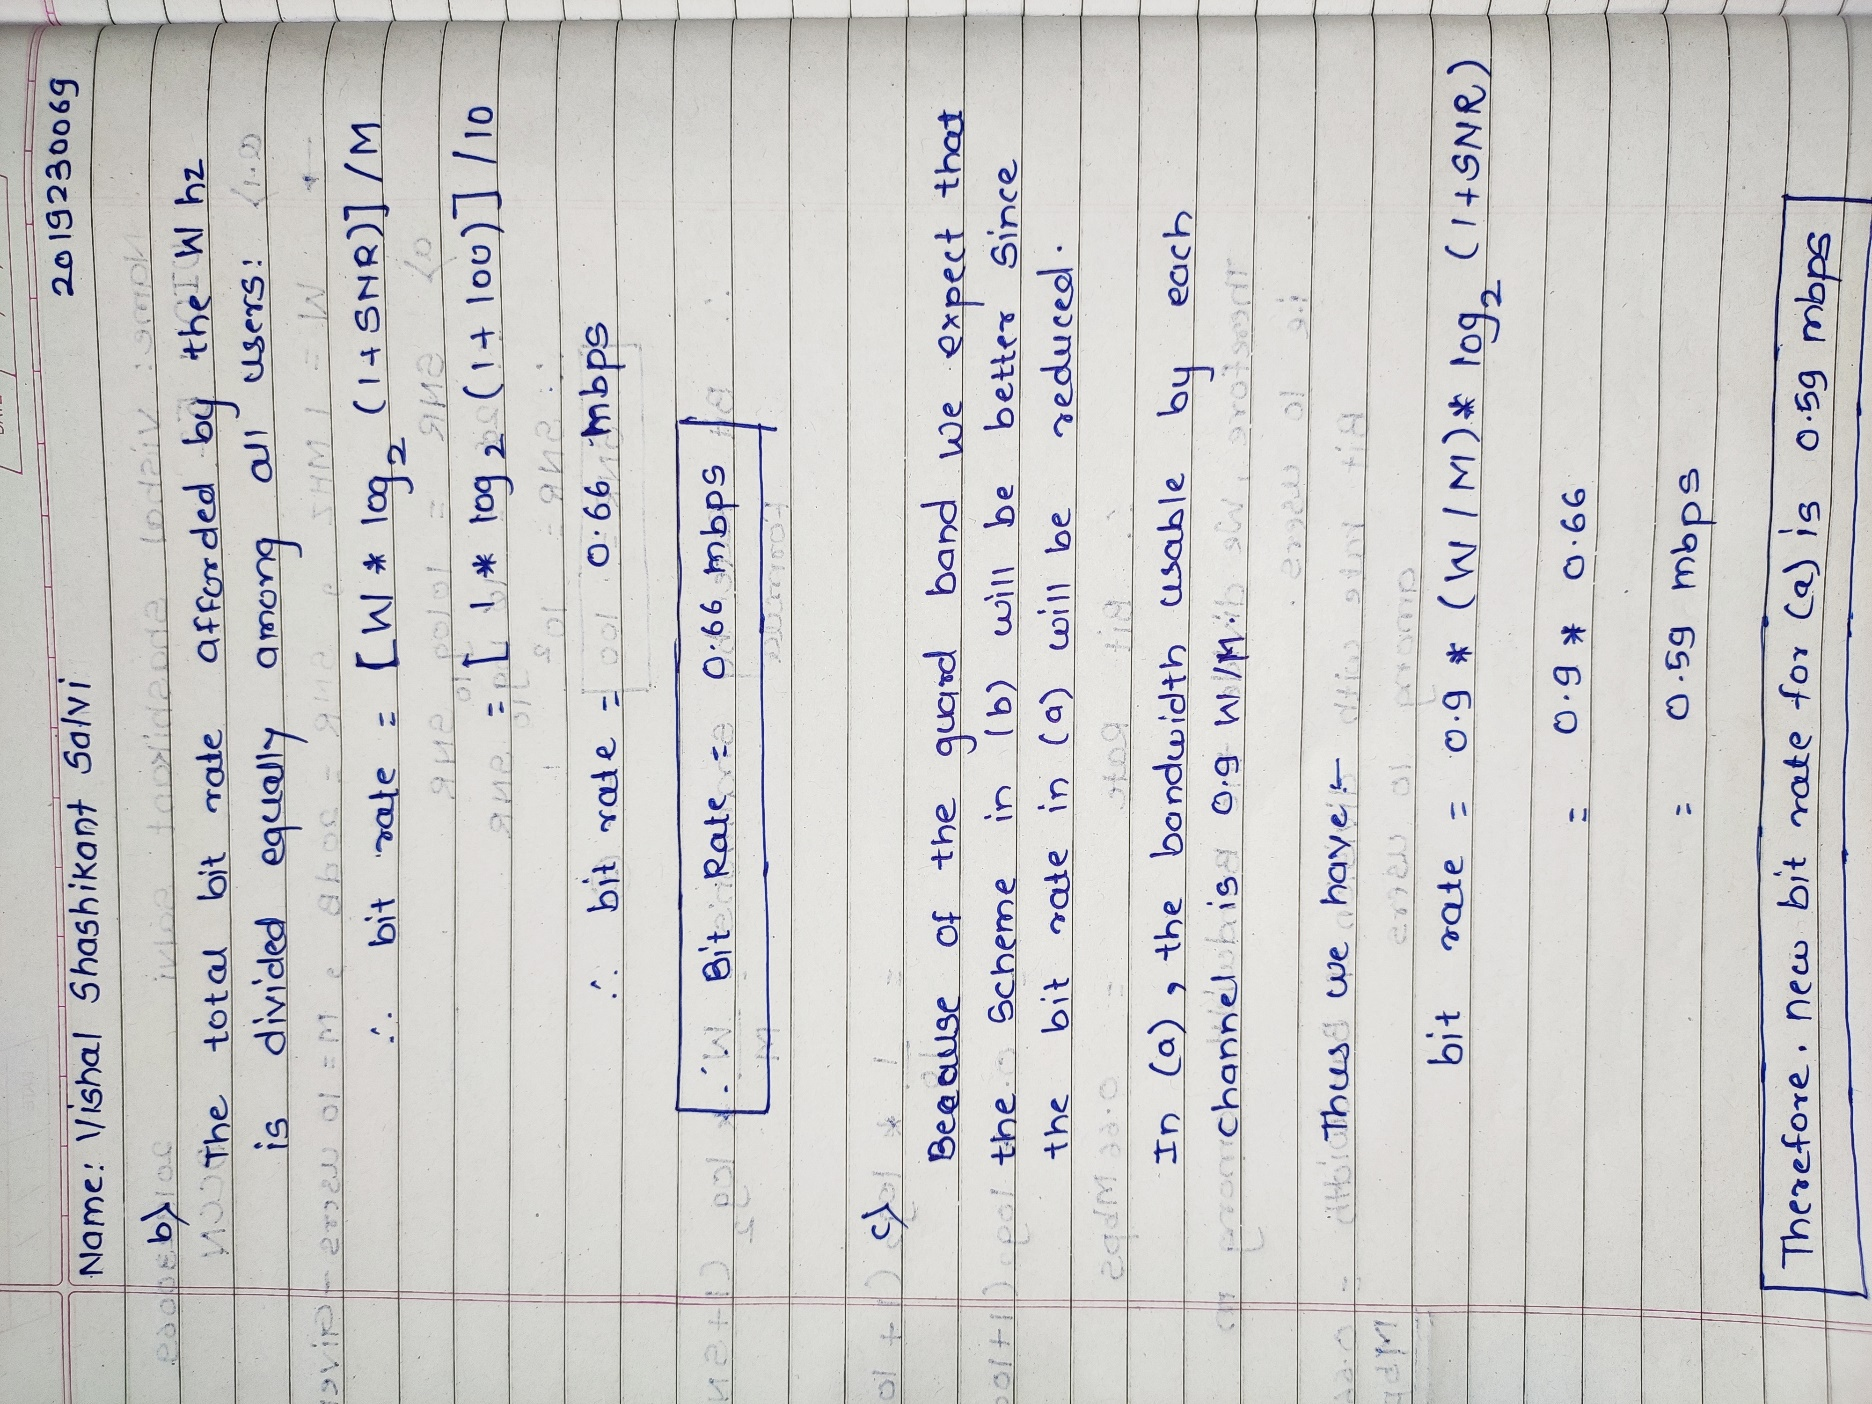 2019230069
Name: Vishal Shashikant Salvi
b)
The total bit rate afforded by the W hz
is divided equally among all users:
∴ bit rate = [W * log2 (1+SNR)] / M
= [1 * log2 (1+100)] / 10
∴ bit rate = 0.66 mbps
Bit Rate = 0.66 mbps
c)
Because of the guard band we expect that
the scheme in (b) will be better since
the bit rate in (a) will be reduced.
In (a), the bandwidth usable by each
channel is 0.9 W/M.
Thus we have:-
bit rate = 0.9 * (W/M) * log2 (1+SNR)
= 0.9 * 0.66
= 0.59 mbps
Therefore, new bit rate for (a) is 0.59 mbps